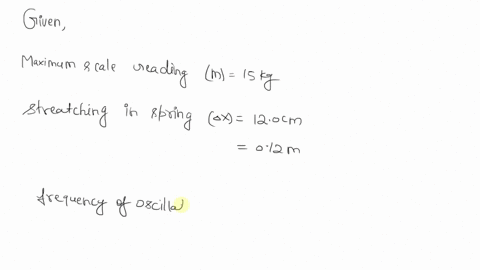 Given,
Maximum scale reading (m) = 15 kg
streatching in spring (Δx) = 12.0cm
= 0.12 m
frequency of oscilla